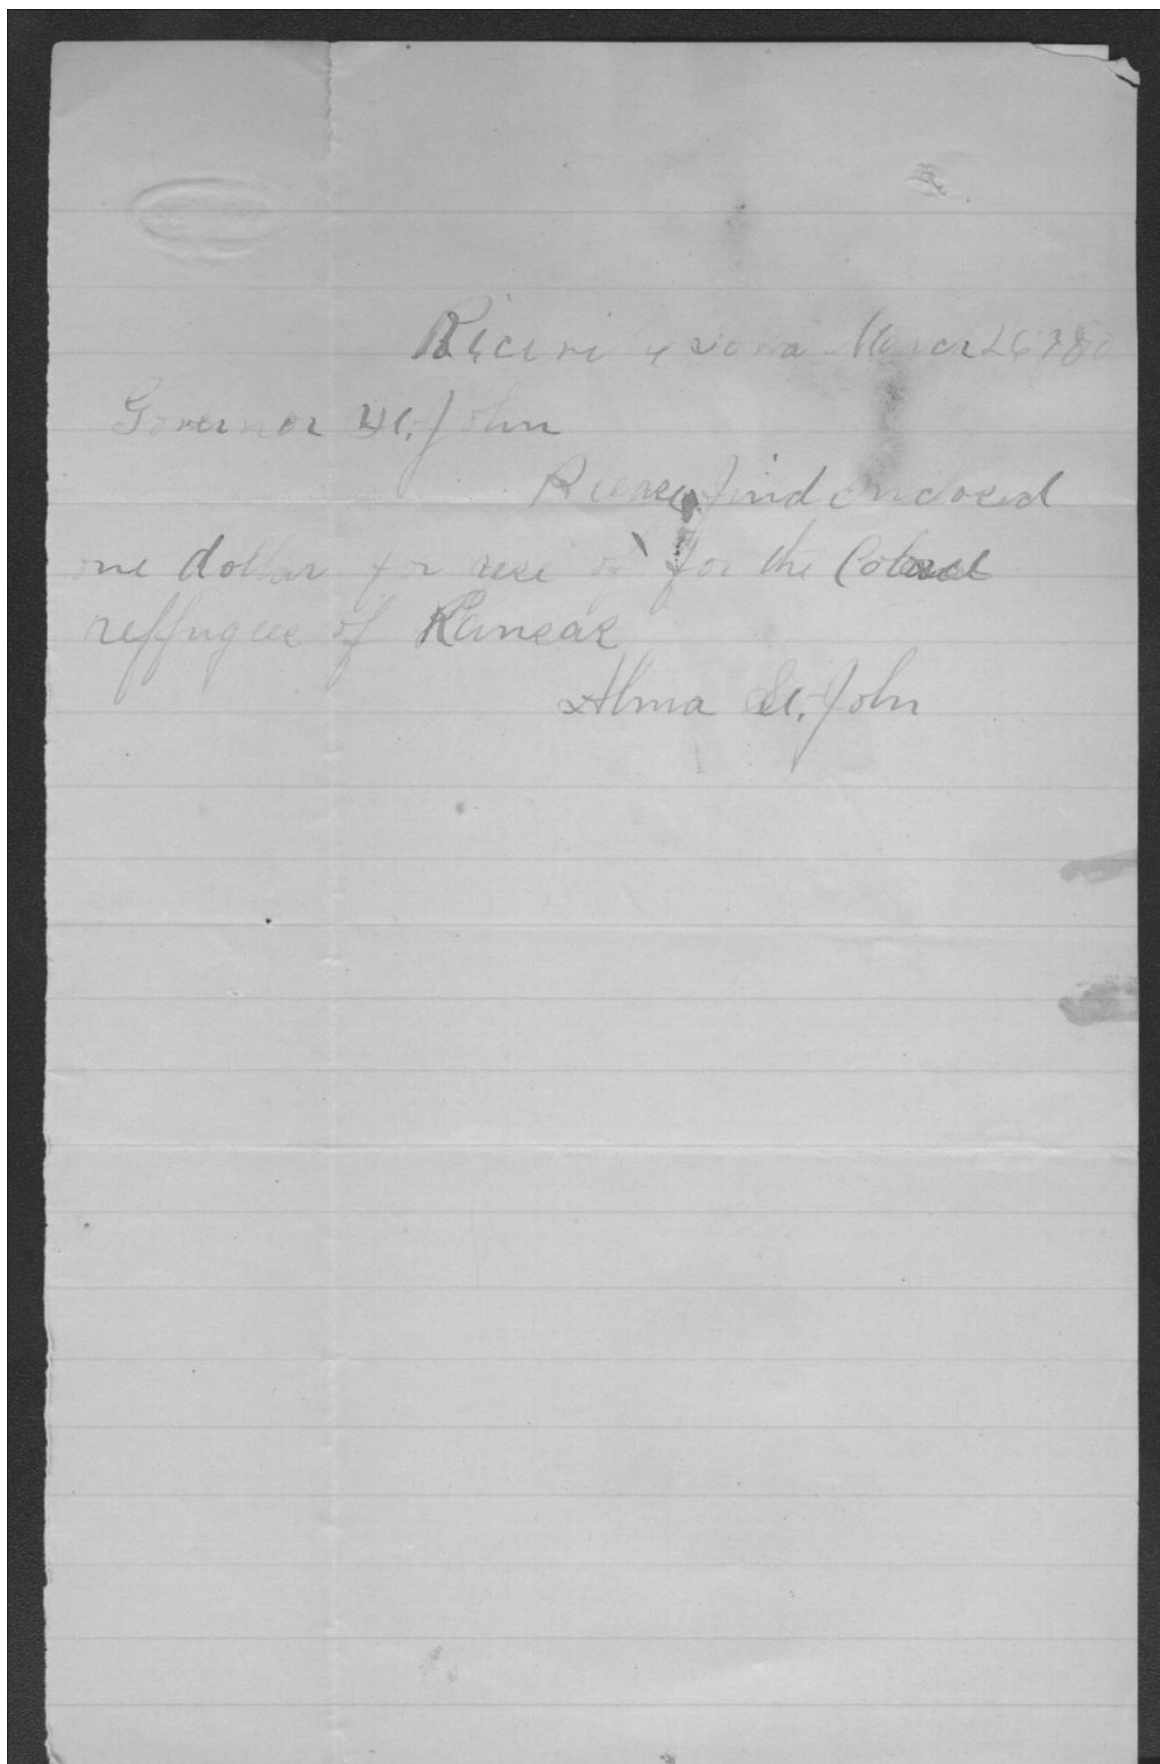 Riceville Iowa March 26 / 80
Governor St. John
Please find enclosed
one dollar for use of for the Colored
reffugees of Kansas
Alma St. John